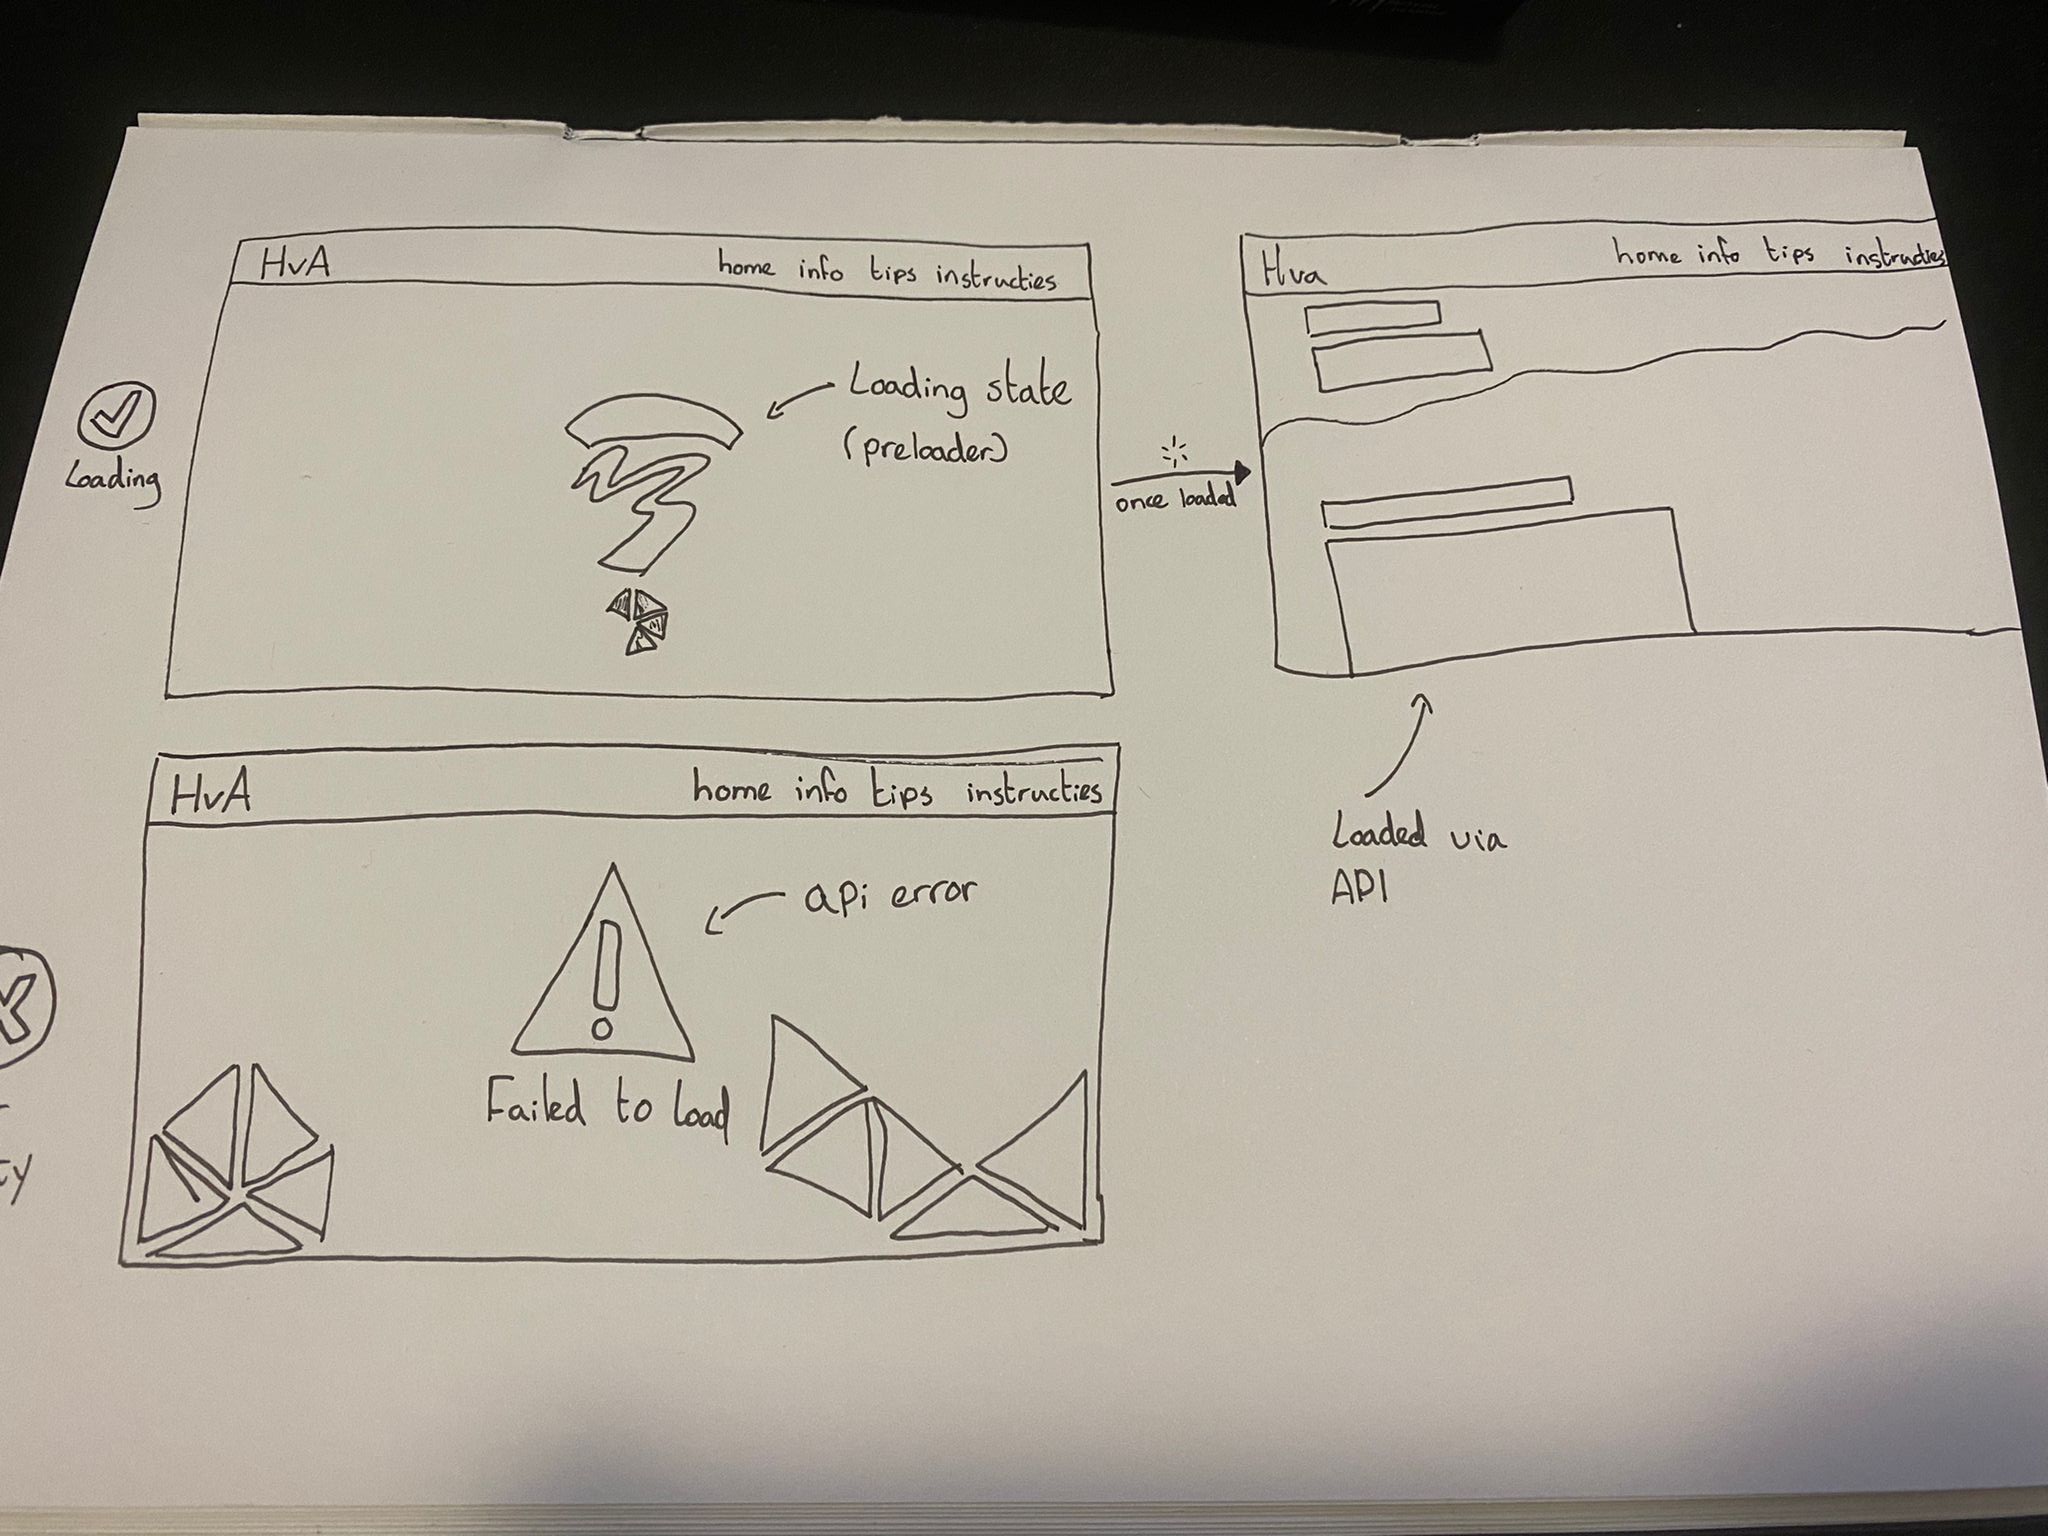 HvA
home info tips instructies
Loading state
(preloader)
Loading
once loaded
Hva
home info tips instructies
Loaded via
API
HvA
home info tips instructies
api error
Failed to load